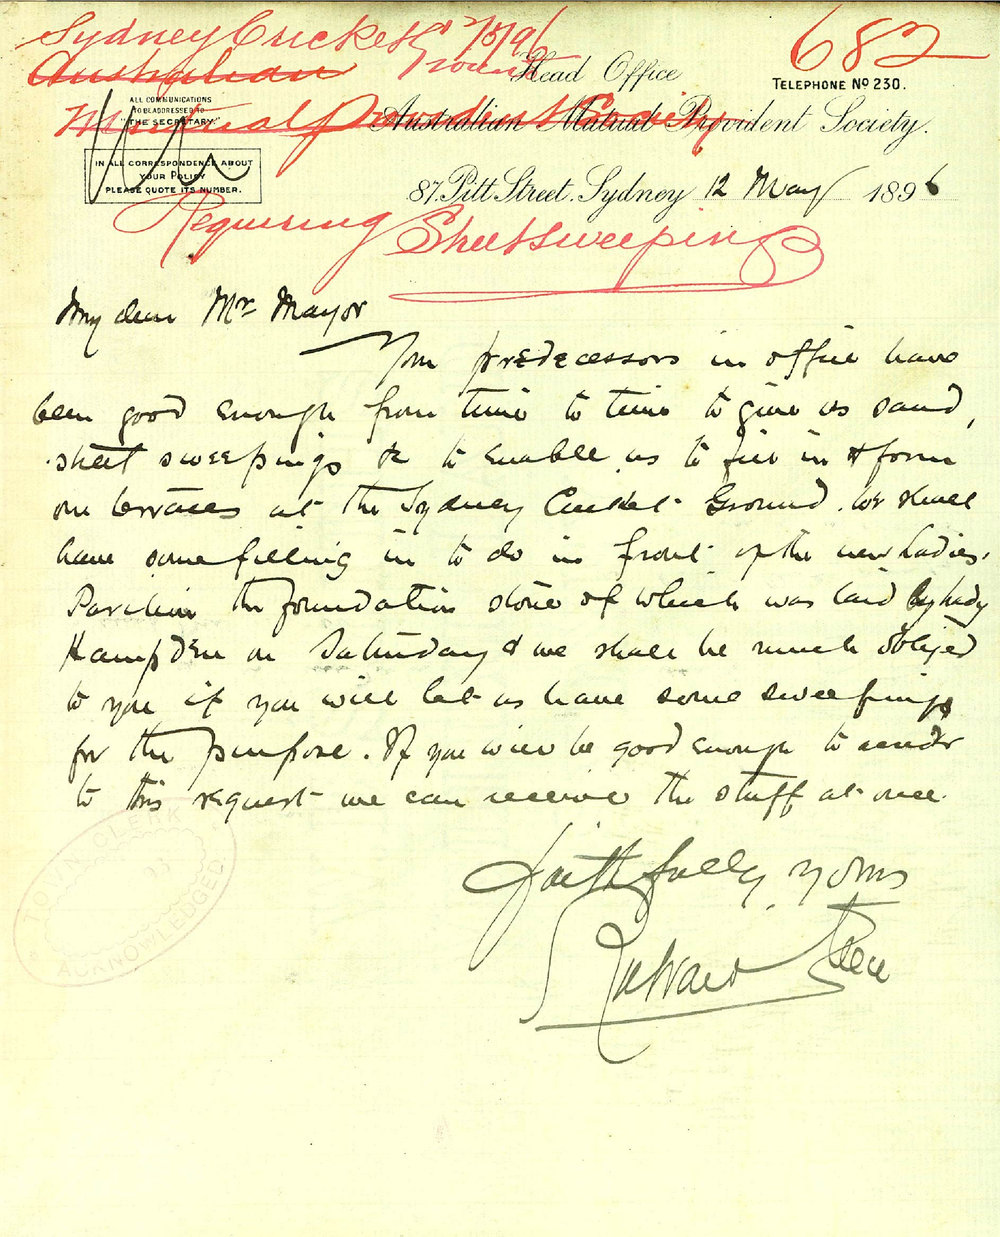 Sydney Cricket Ground 682
Australian
Mutual Provident Society
Head Office
TELEPHONE Nº 230.
ALL COMMUNICATIONS
TO BE ADDRESSED TO
"THE SECRETARY."
Australian Mutual Provident Society.
IN ALL CORRESPONDENCE ABOUT
YOUR POLICY
PLEASE QUOTE ITS NUMBER.
87. Pitt Street. Sydney 12 May 1896
Requiring Streetsweepings
My dear Mr Mayor
Your predecessors in office have
been good enough from time to time to give us sand,
street sweepings &c to enable us to fill in & form
our terraces at the Sydney Cricket Ground. We shall
have some filling in to do in front of the new Ladies'
Pavilion the foundation stone of which was laid by Lady
Hampden on Saturday & we shall be much obliged
to you if you will let us have some sweepings
for the purpose. If you will be good enough to accede
to this request we can receive the stuff at once.
Faithfully yours
Richard Teece
TOWN CLERK
ACKNOWLEDGED